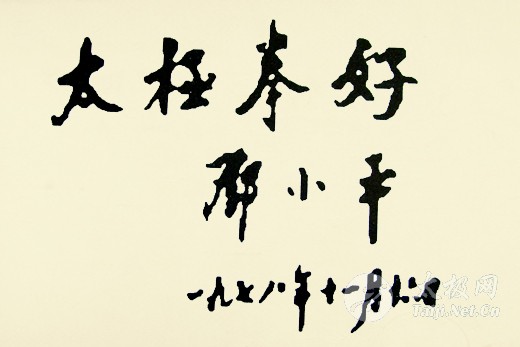 太极拳好
邓小平
一九七八年十一月十六日
太极网
Taiji.Net.Cn